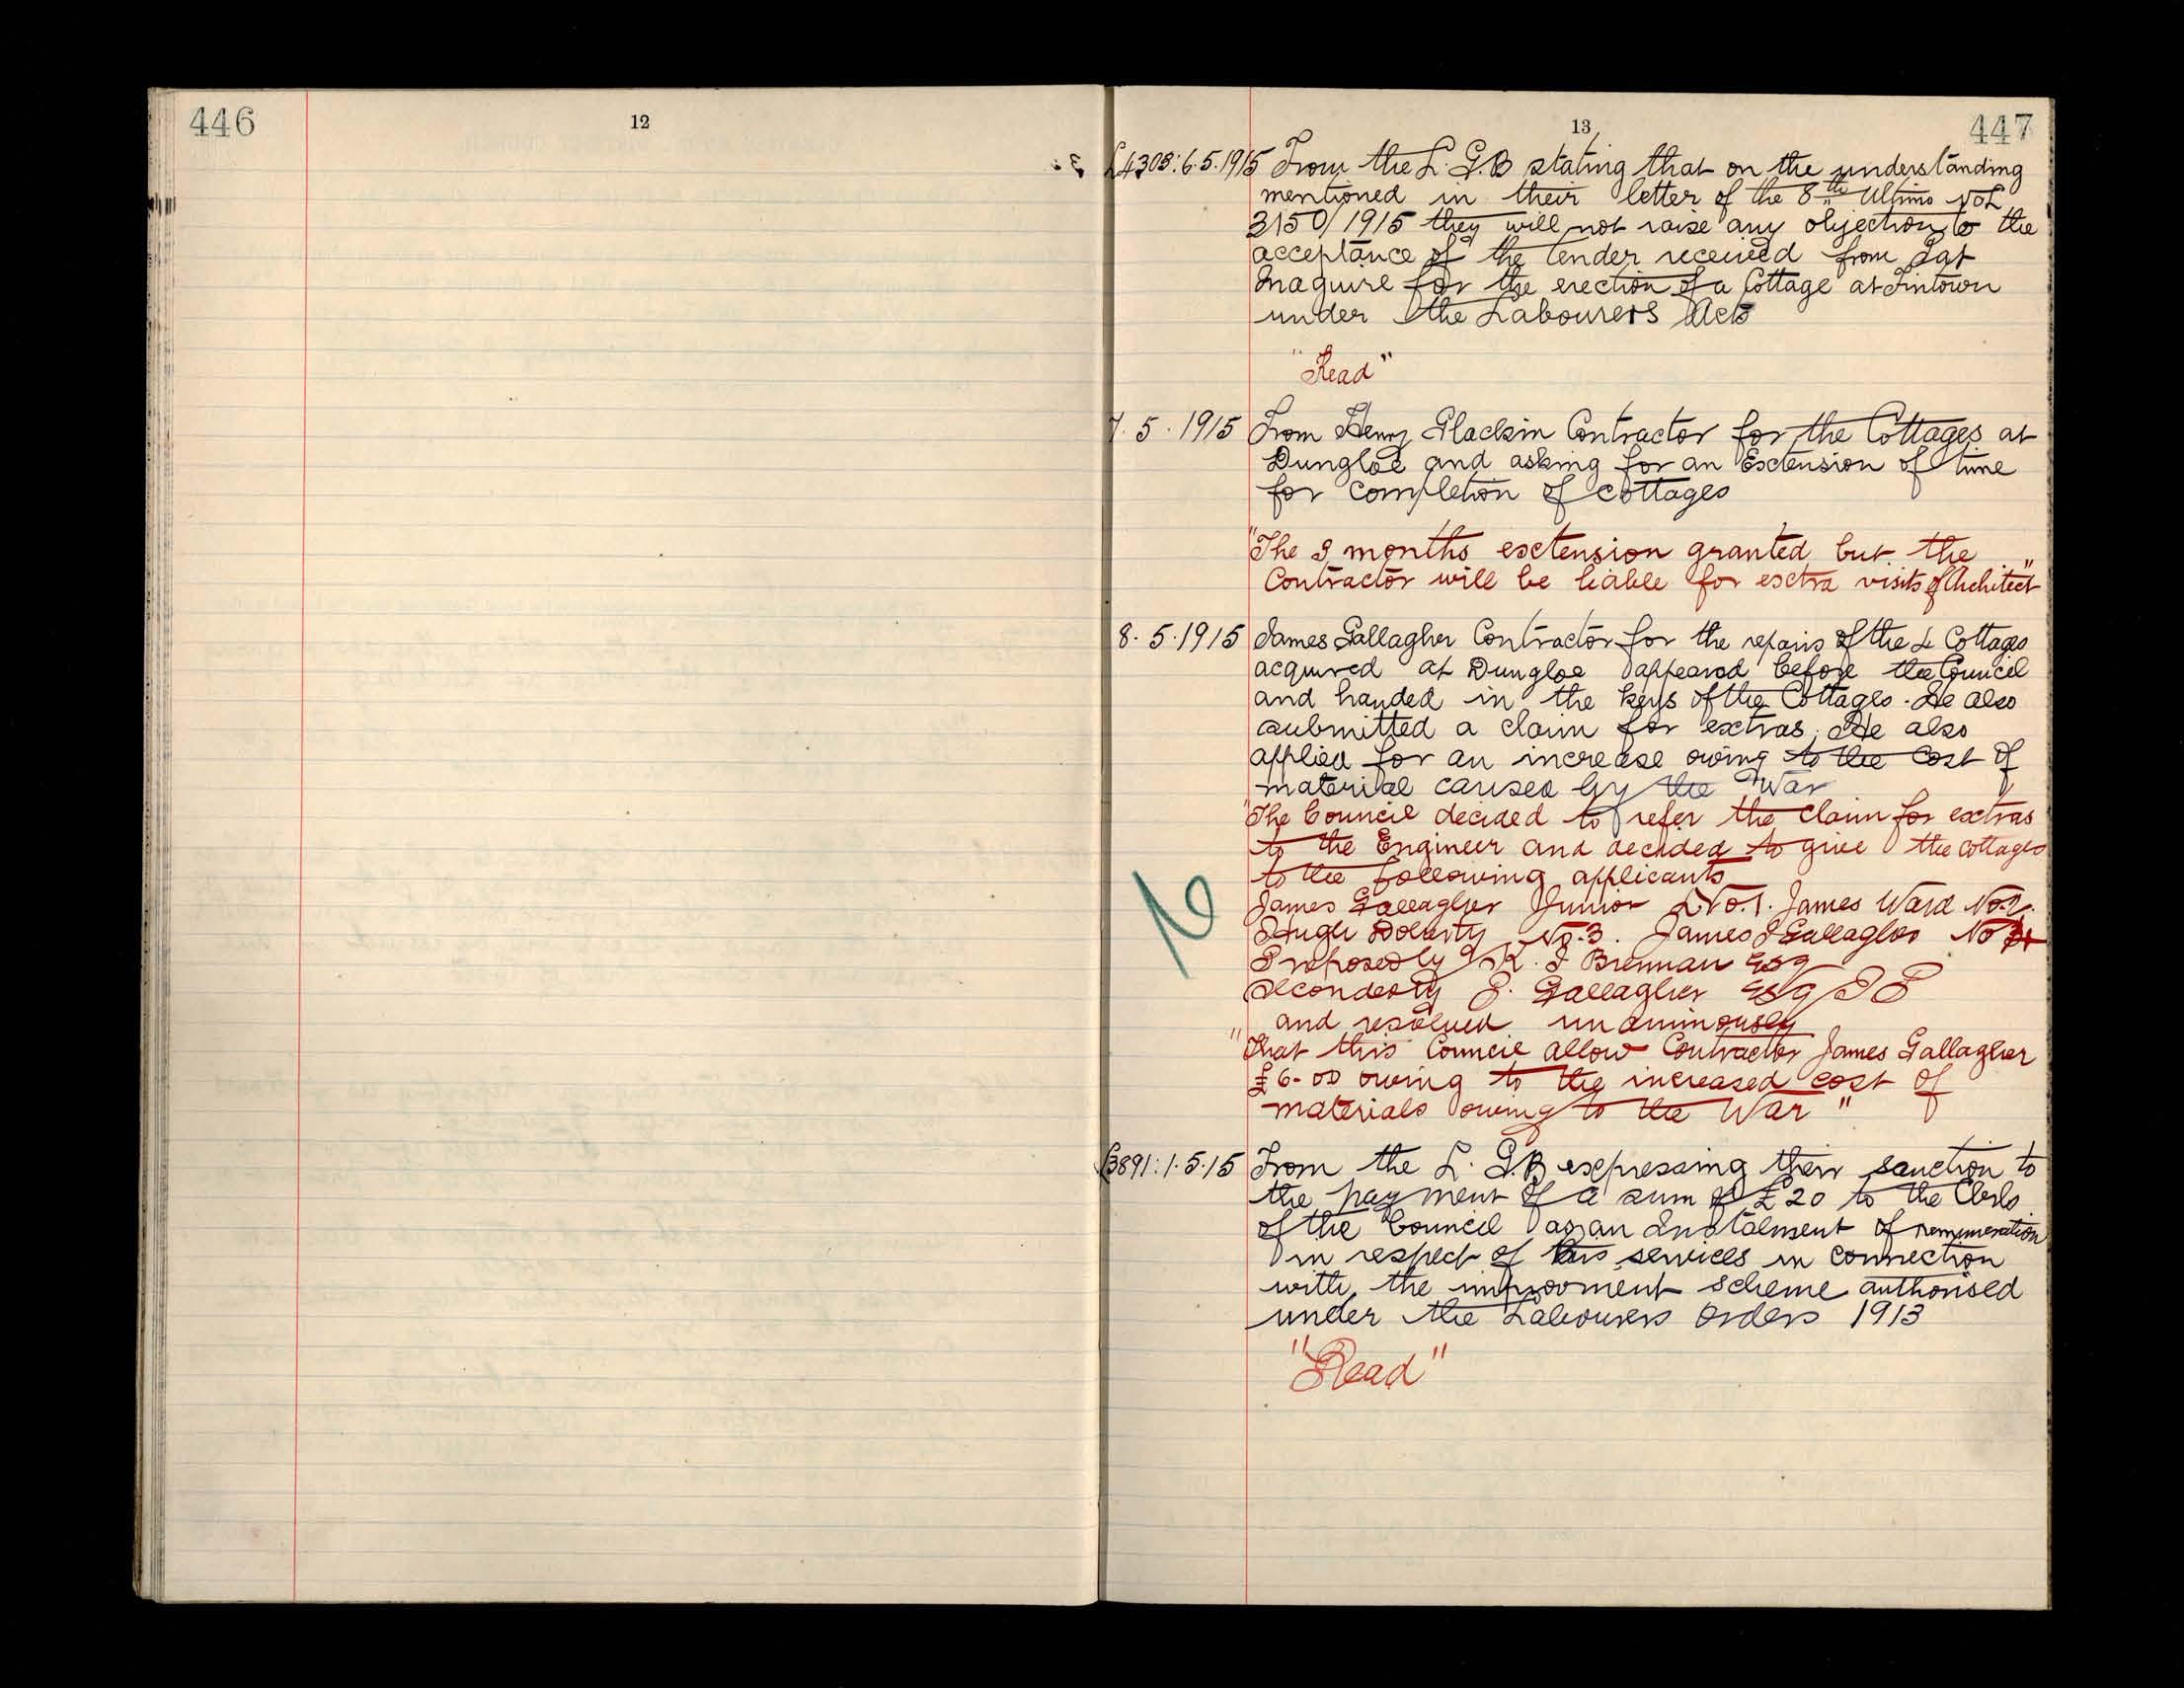 446
12
13
447
L4308:6.5.1915 From the L.G.B stating that on the understanding
mentioned in their letter of the 8th Ultimo No L
3150/1915 they will not raise any objection to the
acceptance of the tender received from Pat
Maguire for the erection of a Cottage at Fintown
under the Labourers Acts
"Read"
7.5.1915 From Henry Glackin Contractor for the Cottages at
Dungloe and asking for an Extension of time
for completion of cottages
"The 9 months extension granted but the
Contractor will be liable for extra visits of Architect"
8.5.1915 James Gallagher Contractor for the repairs of the 4 Cottages
acquired at Dungloe appeared before the Council
and handed in the keys of the Cottages. He also
submitted a claim for extras, He also
applied for an increase owing to the Cost of
material caused by the War
"The Council decided to refer the claim for extras
to the Engineer and decided to give the cottages
to the following applicants
James Gallagher Junior No.1. James Ward No.2.
Hugh Doherty No.3. James J Gallagher No 4
Proposed by K. J Brennan Esq
Seconded by J. Gallagher Esq JP
and resolved unanimously
"That this Council allow Contractor James Gallagher
£6-00 owing to the increased cost of
materials owing to the War"
L3891:1.5.15 From the L.G.B expressing their sanction to
the payment of a sum of £20 to the Clerk
of the Council as an Instalment of remuneration
in respect of his services in connection
with the improvment scheme authorised
under the Labourers Orders 1913
"Read"